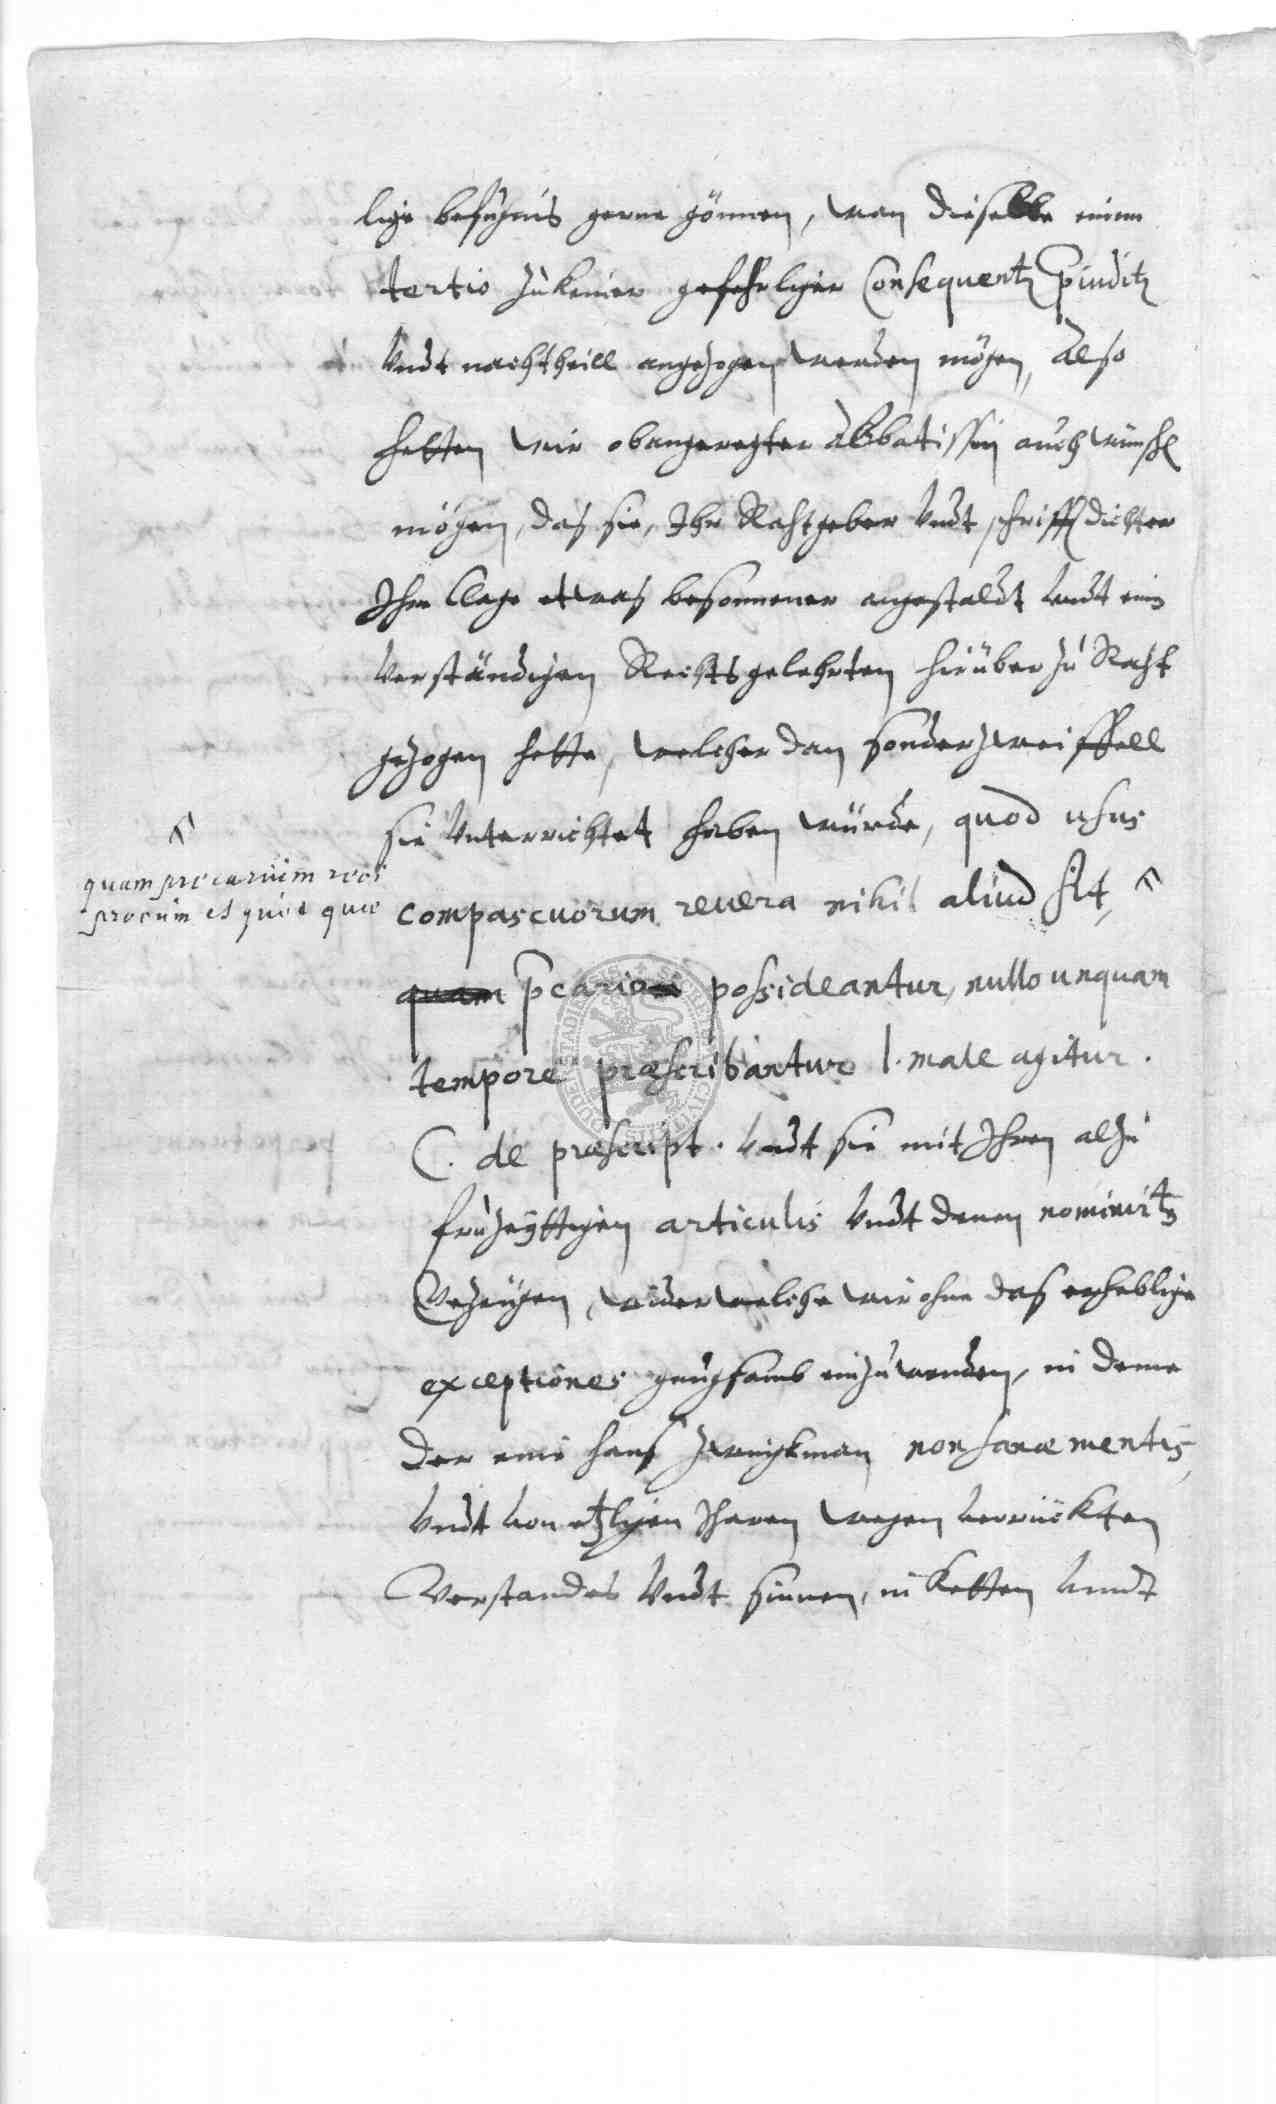 lige befugnis gerne gönnen, wan dieselbe einem
tertio zu keiner gefehrliger Consequentz Præiuditz
Undt nachtheill angezogen werden mögen, Also
hetten wir obangeregter Abbatissin auch wünschen
mögen, das sie, Ihr Rahtgeber Undt schrifftdichter
Ihre Clage etwas besonnener angestaldt Undt eins
Verständigen Rechtsgelehrten hirüber zu Raht
gezogen hette, welcher dan sonder zweiffell
sie Unterrichtet haben würde, quod usus
compascuorum revera nihil aliud sit,
quam precarium
precum et quod quæ
quam precario possideantur, nullo unquam
tempore præscribantur l. male agitur.
C. de præscript. Undt sie mit Ihren alzu
fruzeyttigen articulis Undt denen nominirten
Gezeugen, wider welche wir ohne das erheblige
exceptiones gnugsamb einzuwenden, in deme
der eine Hans non sanæ mentis,
Undt von etzligen Jharen wegen verrückten
Verstandes Undt sinnen, in ketten Undt